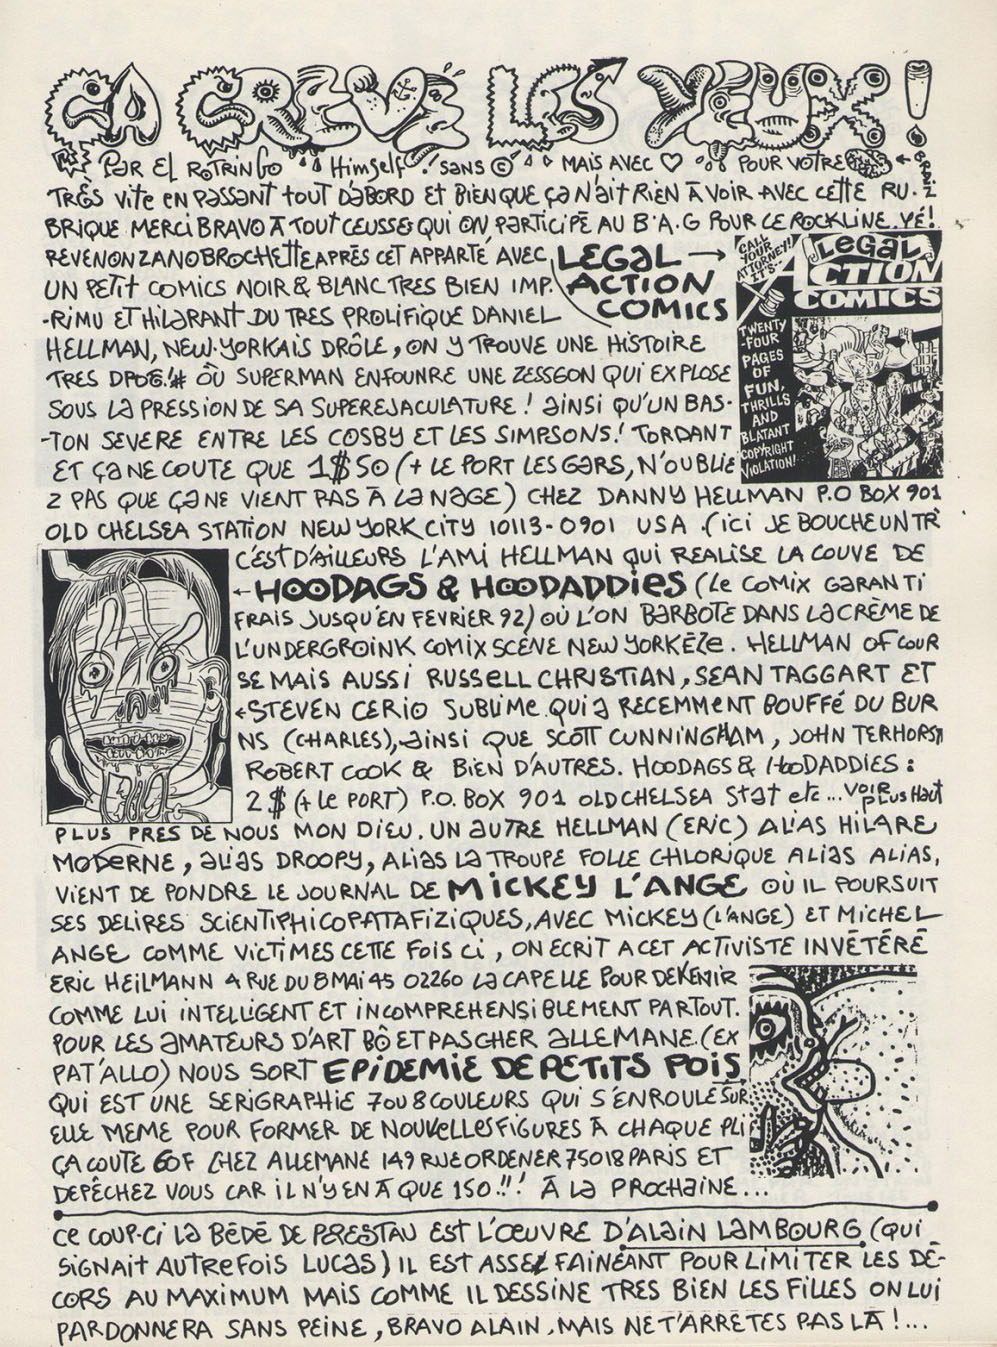 ÇA CREVE LES YEUX!
PAR EL ROTRINGO Himself! SANS © MAIS AVEC ♡ POUR VOTRE ←
TRÈS VITE EN PASSANT TOUT D'ABORD ET BIEN QUE ÇA N'AIT RIEN À VOIR AVEC CETTE RU-
BRIQUE MERCI BRAVO À TOUT CEUSSE QUI ON PARTICIPÉ AU B.A.G POUR LE ROCKLINE. YÉ!
REVENONZANOBROCHETTE APRÈS CET APPARTÉ AVEC LEGAL →
UN PETIT COMICS NOIR & BLANC TRES BIEN IMP. ACTION
-RIMU ET HILARANT DU TRES PROLIFIQUE DANIEL COMICS
HELLMAN, NEW-YORKAIS DRÔLE, ON Y TROUVE UNE HISTOIRE
TRES OÙ SUPERMAN ENFOUNRE UNE ZESSGON QUI EXPLOSE
SOUS LA PRESSION DE SA SUPEREJACULATURE! AINSI QU'UN BAS-
-TON SEVERE ENTRE LES COSBY ET LES SIMPSONS! TORDANT
ET ÇA NE COUTE QUE 1$50 (+ LE PORT LES GARS, N'OUBLIE
Z PAS QUE ÇA NE VIENT PAS À LA NAGE) CHEZ DANNY HELLMAN P.O BOX 901
OLD CHELSEA STATION NEW YORK CITY 10113-0901 USA. (ICI JE BOUCHE UN TR
CALL YOUR ATTORNEY! IT'S-
LEGAL
ACTION
COMICS
TWENTY
-FOUR
PAGES
OF
FUN,
THRILLS
AND
BLATANT
COPYRIGHT
VIOLATION!
C'EST D'AILLEURS L'AMI HELLMAN QUI REALISE LA COUVE DE
← HOODAGS & HOODADDIES (LE COMIX GARANTI
FRAIS JUSQU'EN FEVRIER 92) OÙ L'ON BARBOTE DANS LA CRÈME DE
L'UNDERGROINK COMIX SCENE NEW YORKÈZE. HELLMAN OF COUR
SE MAIS AUSSI RUSSELL CHRISTIAN, SEAN TAGGART ET
← STEVEN CERIO SUBLIME QUI A RECEMMENT BOUFFÉ DU BUR
NS (CHARLES), AINSI QUE SCOTT CUNNINGHAM, JOHN TERHORST
ROBERT COOK & BIEN D'AUTRES. HOODAGS & HOODADDIES:
2$ (+ LE PORT) P.O. BOX 901 OLD CHELSEA STAT etc... VOIR PLUS HAUT
PLUS PRES DE NOUS MON DIEU. UN AUTRE HELLMAN (ERIC) ALIAS HILARE
MODERNE, ALIAS DROOPY, ALIAS LA TROUPE FOLLE CHLORIQUE ALIAS ALIAS,
VIENT DE PONDRE LE JOURNAL DE MICKEY L'ANGE OÙ IL POURSUIT
SES DELIRES SCIENTIPHICOPATAFIZIQUES, AVEC MICKEY (L'ANGE) ET MICHEL
ANGE COMME VICTIMES CETTE FOIS CI, ON ECRIT A CET ACTIVISTE INVÉTÉRÉ
ERIC HEILMANN 4 RUE DU 8 MAI 45 02260 LA CAPELLE POUR DEVENIR
COMME LUI INTELLIGENT ET INCOMPREHENSIBLEMENT PARTOUT.
POUR LES AMATEURS D'ART BÔ ET PAS CHER ALLEMANE. (EX
PAT'ALLO) NOUS SORT EPIDEMIE DE PETITS POIS
QUI EST UNE SERIGRAPHIE 7 OU 8 COULEURS QUI S'ENROULE SUR
ELLE MEME POUR FORMER DE NOUVELLES FIGURES À CHAQUE PLI
ÇA COUTE 60F CHEZ ALLEMANE 149 RUE ORDENER 75018 PARIS ET
DEPÊCHEZ VOUS CAR IL N'Y EN À QUE 150!!! À LA PROCHAINE...
CE COUP-CI LA BÉDÉ DE PRESTAU EST L'ŒUVRE D'ALAIN LAMBOURG (QUI
SIGNAIT AUTREFOIS LUCAS) IL EST ASSEZ FAINÉANT POUR LIMITER LES DÉ-
CORS AU MAXIMUM MAIS COMME IL DESSINE TRES BIEN LES FILLES ON LUI
PARDONNERA SANS PEINE, BRAVO ALAIN, MAIS NE T'ARRETES PAS LÀ!...